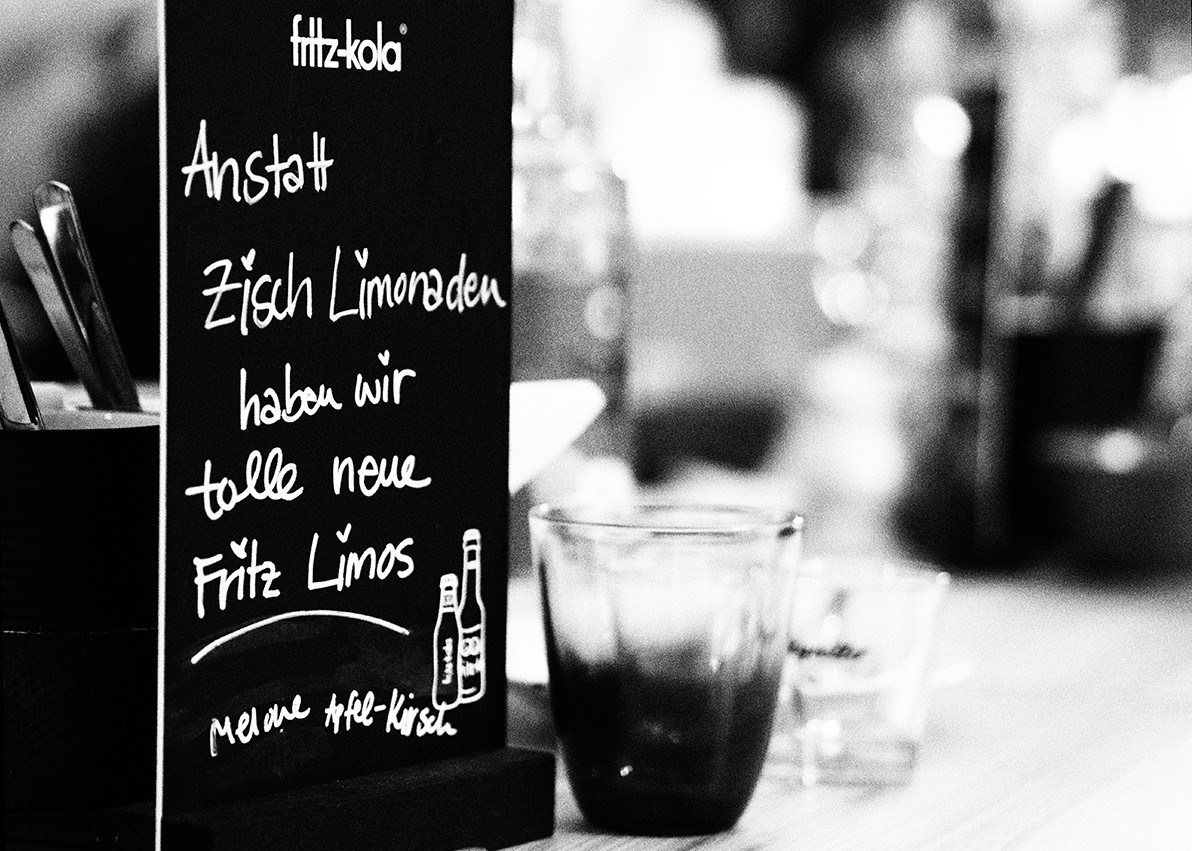 fritz-kola®
Anstatt
Zisch Limonaden
haben wir
tolle neue
Fritz Limos
Melone Apfel-Kirsch